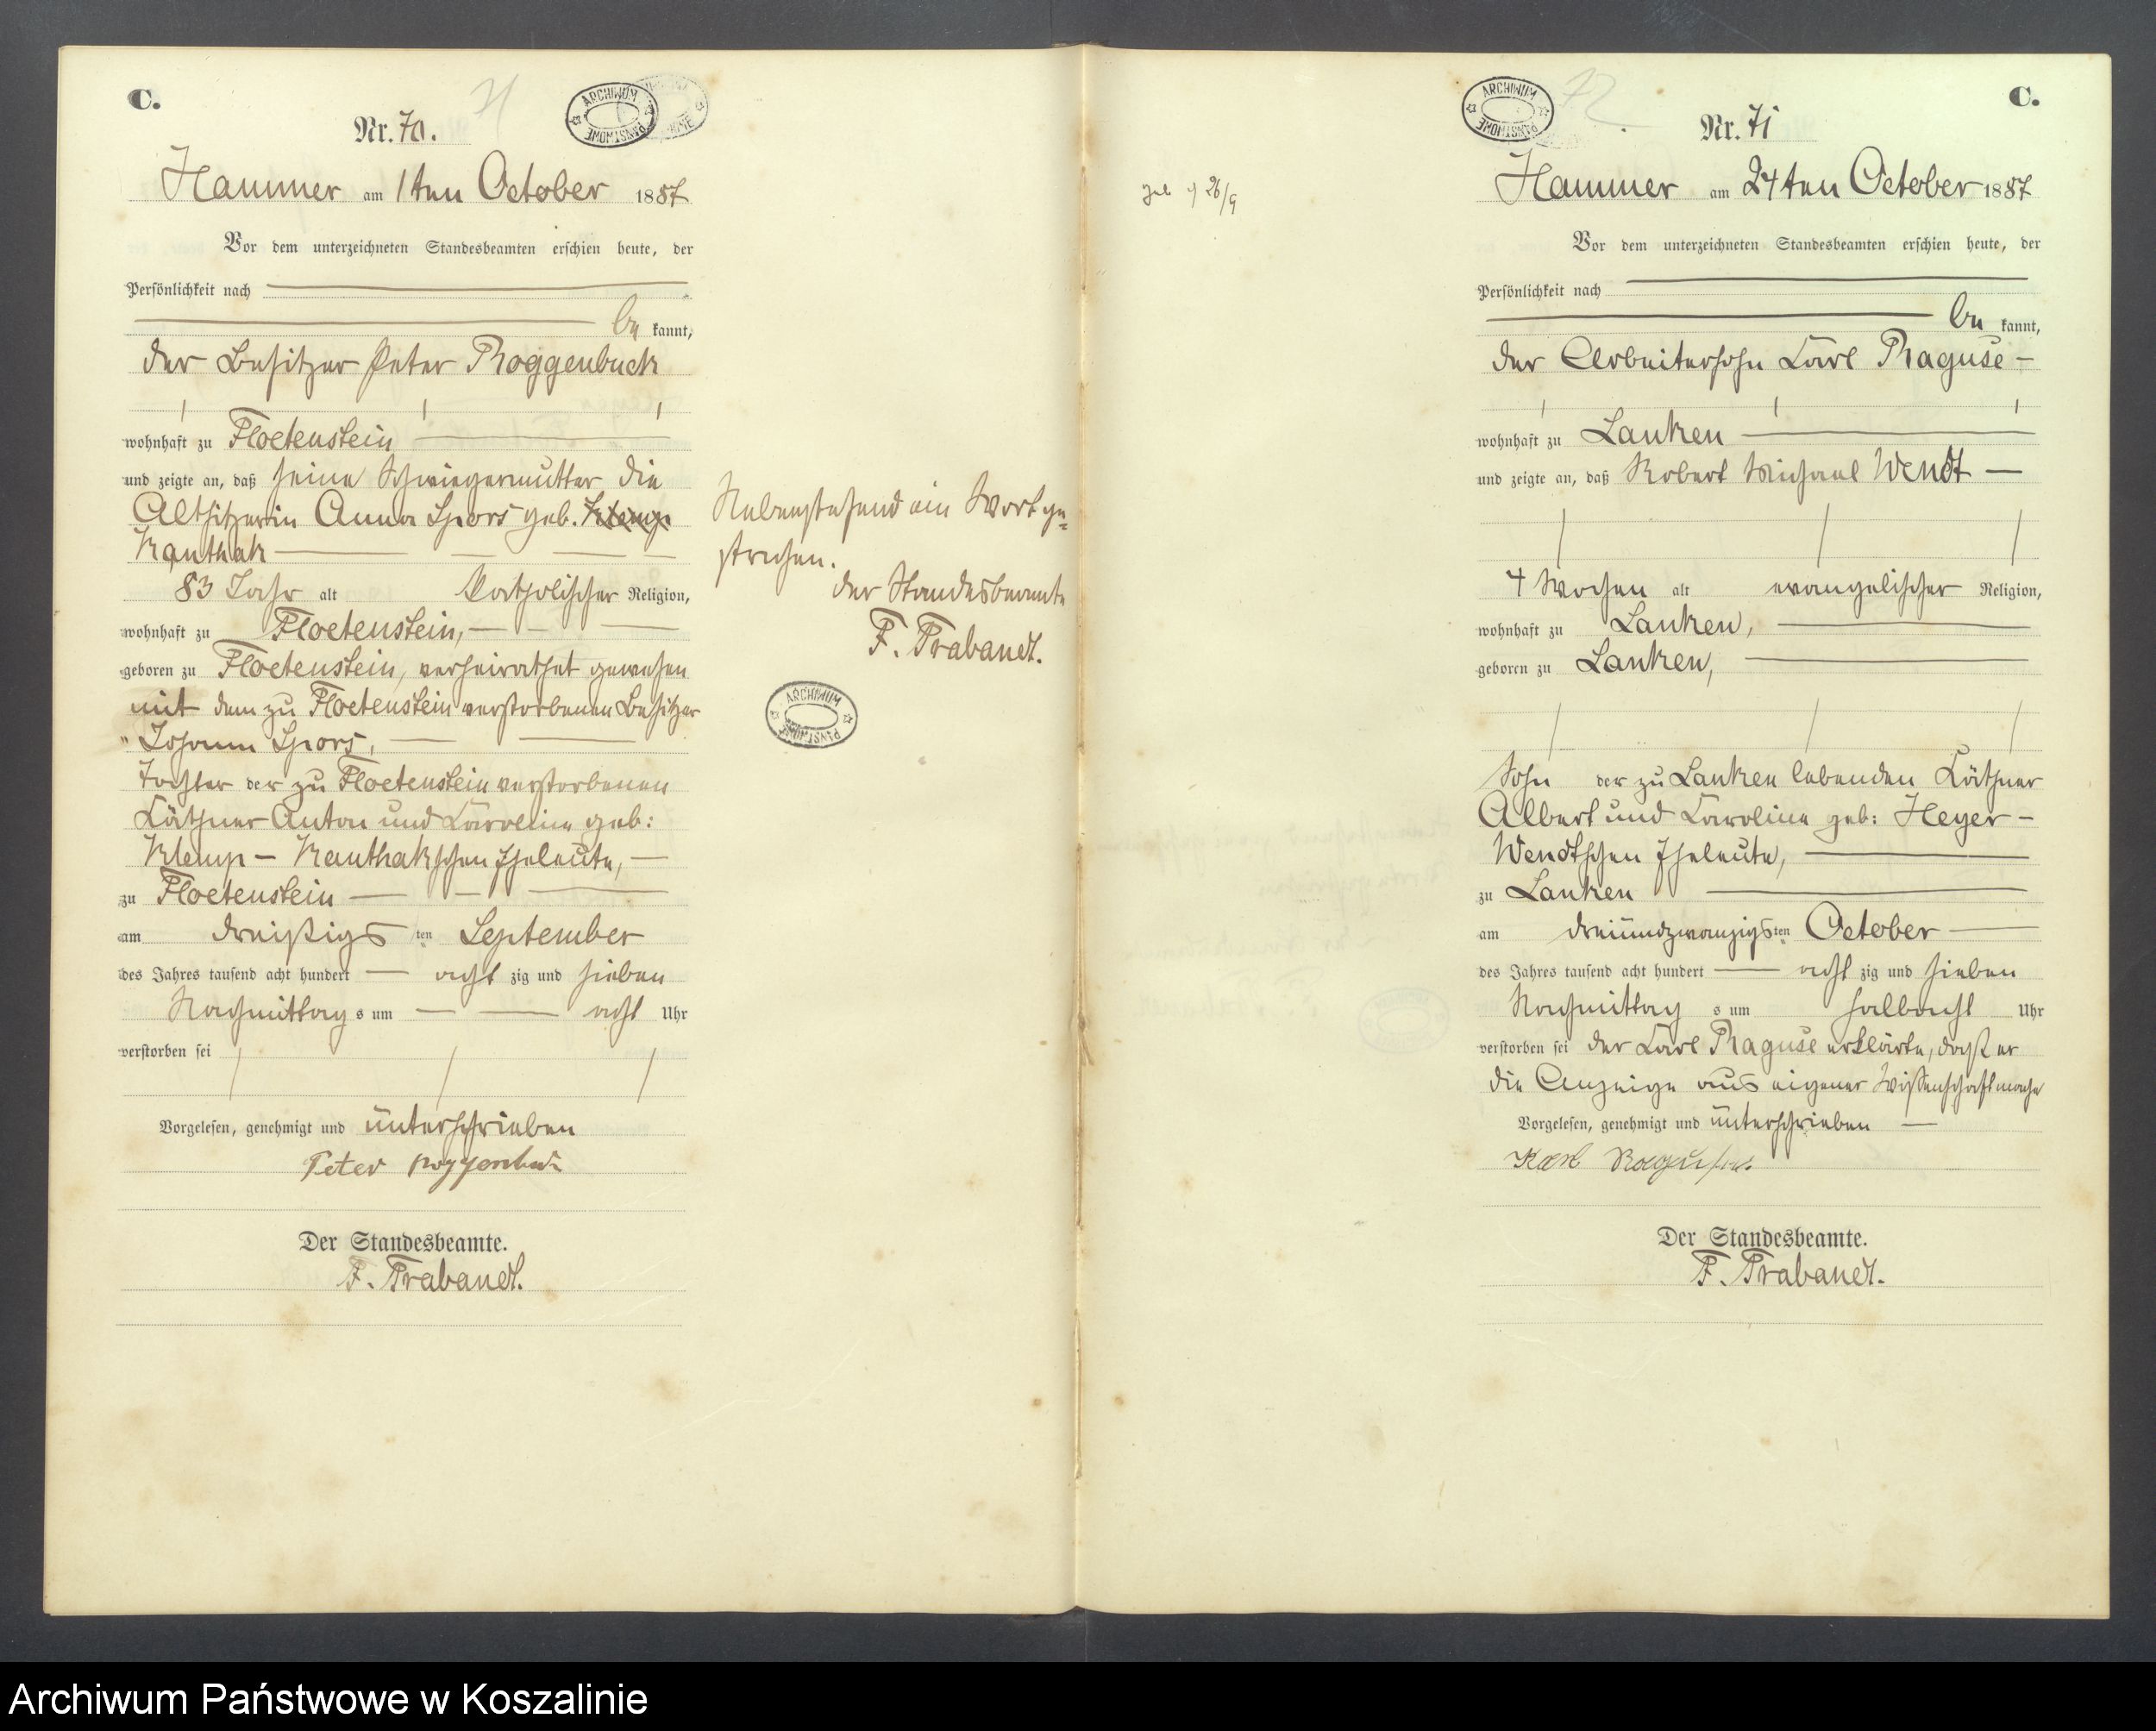 C.
Nr. 70.
71
ARCHIWUM PAŃSTWOWE
Hammer am 1ten October 1887
Vor dem unterzeichneten Standesbeamten erschien heute, der
Persönlichkeit nach
be kannt,
der Besitzer Peter Roggenbuck
wohnhaft zu Floetenstein
und zeigte an, daß seine Schwiegermutter die
Altsitzerin Anna Spors geb. Klemp
Kanthak
83 Jahr alt katholischer Religion,
wohnhaft zu Floetenstein,
geboren zu Floetenstein, verheirathet gewesen
mit dem zu Floetenstein verstorbenen Besitzer
Johann Spors,
Tochter der zu Floetenstein verstorbenen
Käthner Anton und Caroline geb:
Klemp - Kanthakschen Eheleute,
zu Floetenstein
am dreißigs ten September
des Jahres tausend acht hundert acht zig und sieben
Nachmittag s um acht Uhr
verstorben sei
Vorgelesen, genehmigt und unterschrieben
Peter Roggenbuck
Der Standesbeamte.
F. Trabandt.
Nebenstehend ein Wort ge=
strichen.
der Standesbeamte
F. Trabandt.
ARCHIWUM PAŃSTWOWE
geb. 26/9
C.
Nr. 71
72
ARCHIWUM PAŃSTWOWE
Hammer am 24ten October 1887
Vor dem unterzeichneten Standesbeamten erschien heute, der
Persönlichkeit nach
be kannt,
der Arbeitersohn Carl Raguse -
wohnhaft zu Lanken
und zeigte an, daß Robert Michael Wendt -
4 Wochen alt evangelischer Religion,
wohnhaft zu Lanken,
geboren zu Lanken,
Sohn der zu Lanken lebenden Käthner
Albert und Caroline geb: Heyer -
Wendtschen Eheleute,
zu Lanken
am dreiundzwanzigs ten October
des Jahres tausend acht hundert acht zig und sieben
Nachmittag s um halbacht Uhr
verstorben sei der Carl Raguse erklärte, daß er
die Anzeige aus eigener Wissenschaft mache
Vorgelesen, genehmigt und unterschrieben
Karl Raguse
Der Standesbeamte.
F. Trabandt.
Archiwum Państwowe w Koszalinie